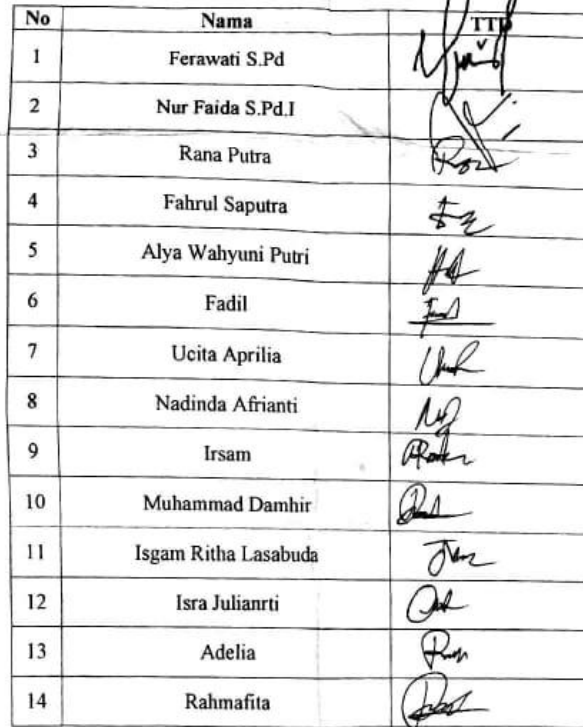 No Nama TTD
1 Ferawati S.Pd
2 Nur Faida S.Pd.I
3 Rana Putra
4 Fahrul Saputra
5 Alya Wahyuni Putri
6 Fadil
7 Ucita Aprilia
8 Nadinda Afrianti
9 Irsam
10 Muhammad Damhir
11 Isgam Ritha Lasabuda
12 Isra Julianrti
13 Adelia
14 Rahmafita